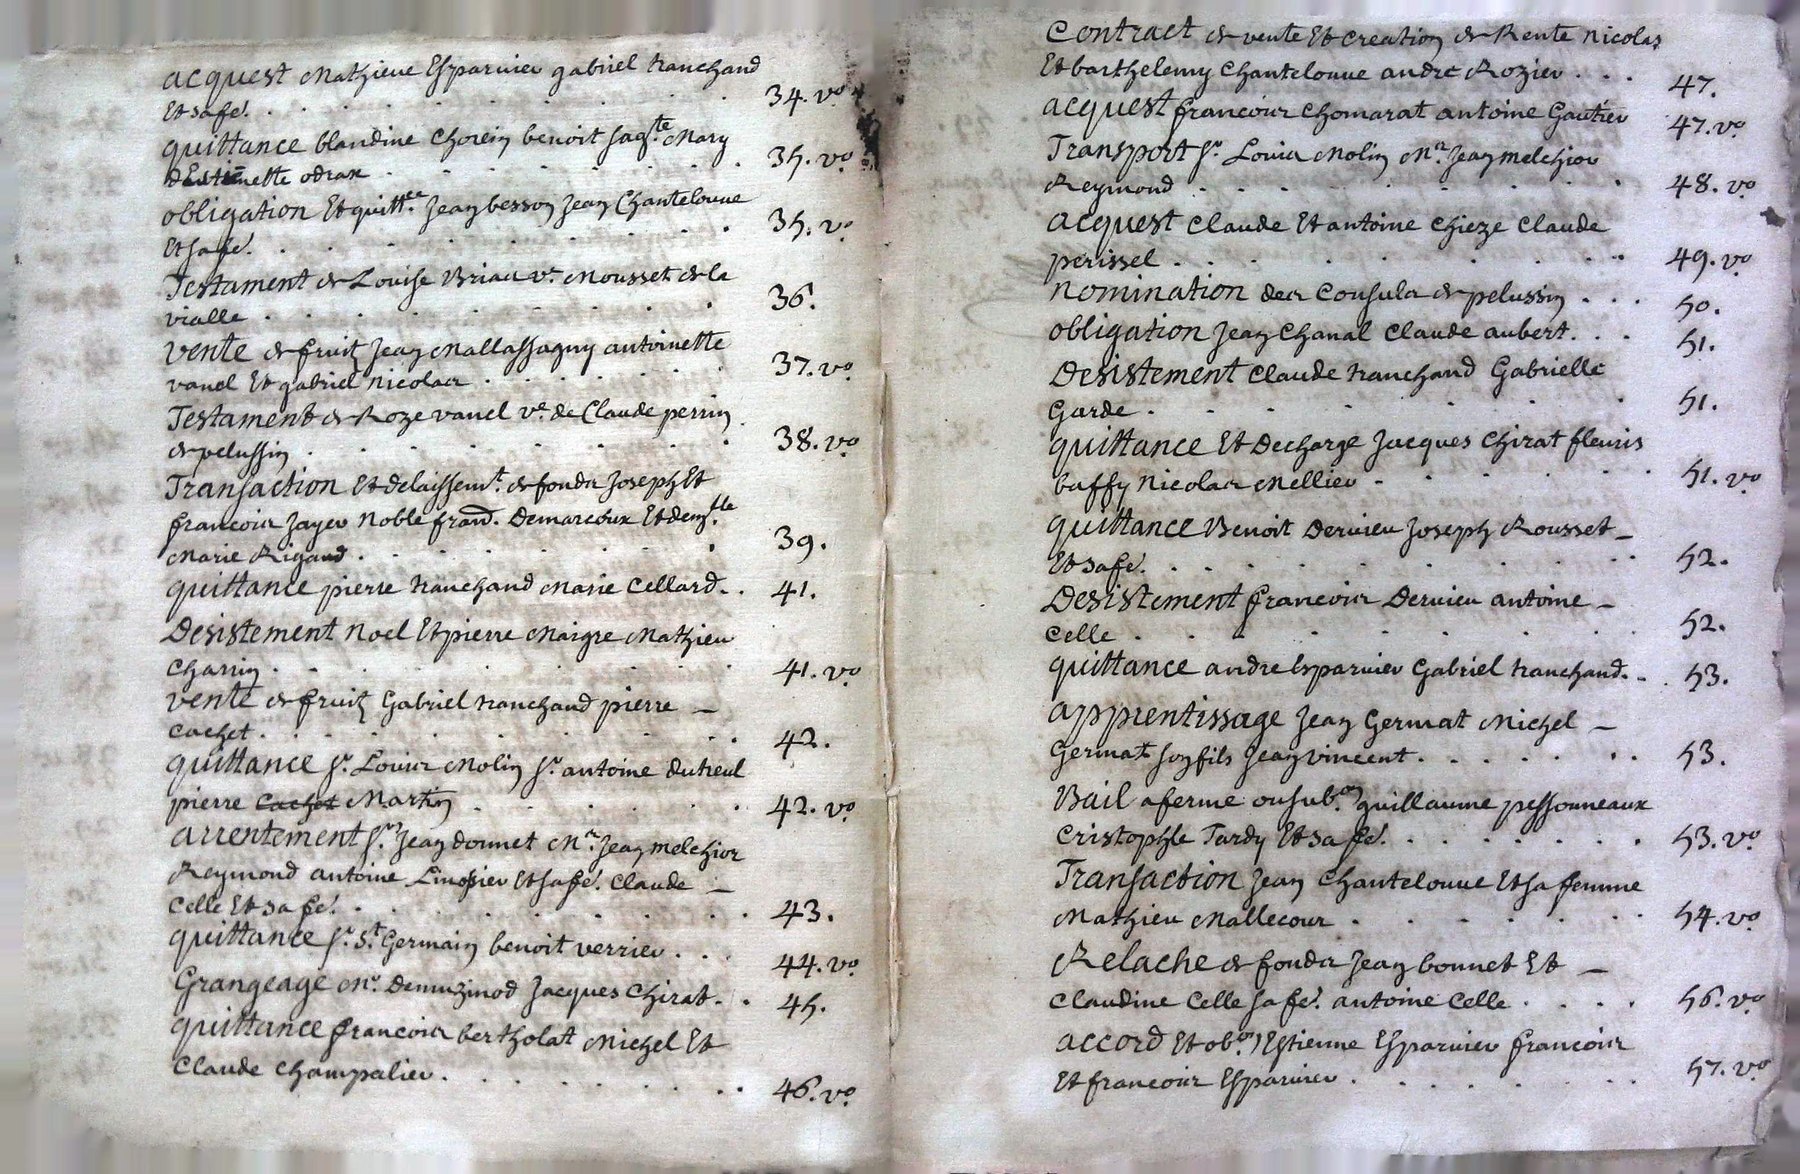 acquest Mathieue Esparvier gabriel tranchand
Et sa fe. 34. vo
quittance blandine Chorein benoit sagte Mary
d'Estienette odrax 35. vo
obligation Et quittce Jean besson Jean Chantelouve
Et sa fe. 35. vo
Testament de Louise Briau ve Mousset de la
vialle 36.
vente de fruitz Jean Mallassagny antoinette
vanel Et gabriel nicolas 37. vo
Testament de Roze vanel ve de Claude perrin
de pelussin 38. vo
Transaction Et delaissemt de fonds Joseph Et
francois Jayer Noble frand. Demarcoux Et demlle
Marie Rigaud 39.
quittance pierre tranchand Marie Cellard 41.
Desistement Noel Et pierre Maigre Mathieu
Charrin 41. vo
vente de fruitz Gabriel tranchand pierre
Cachet 42.
quittance Sr. Louis Molin Sr. antoine dutreul
pierre Cachet Martin 42. vo
arrentement Sr. Jean donnet Mr. Jean melchior
Reymond antoine Linossier Et sa fe. Claude
Celle Et sa fe. 43.
quittance Sr. St. Germain benoit verrier 44. vo
Grangeage Mr. Demuzinod Jacques Chirat 45.
quittance francois bertholat Michel Et
Claude Champalier 46. vo
Contract de vente Et Creation de Rente nicolas
Et barthelemy Chantelouve andre Rozier 47.
acquest francois Chomarat antoine Gautier 47. vo
Transport Sr. Louis Molin Mr. Jean melchior
Reymond 48. vo
acquest Claude Et antoine Chieze Claude
perissel 49. vo
nomination des Consuls de pelussin 50.
obligation Jean Chanal Claude aubert 51.
Desistement Claude tranchand Gabrielle
Garde 51.
quittance Et Decharge Jacques Chirat fleuris
baffy Nicolas Mellier 51. vo
quittance Benoit Dervieu Joseph Rousset
Et sa fe. 52.
Desistement francois Dervieu antoine
Celle 52.
quittance andre Esparvier Gabriel tranchand 53.
apprentissage Jean Germat Michel
Germat son fils Jean vincent 53.
Bail a ferme ou sub.on guillaume pessonneaux
Cristophle Tardy Et sa fe. 53. vo
Transaction Jean Chantelouve Et sa femme
Mathieu Mallecour 54. vo
Relache de fonds Jean bonnet Et
Claudine Celle sa fe. antoine Celle 56. vo
accord Et ob.on Estienne Esparvier francois
Et francois Esparvier 57. vo